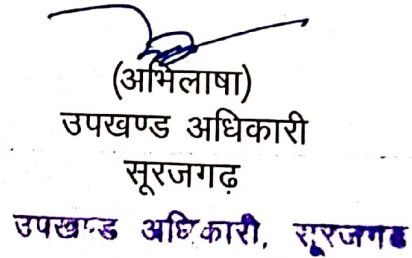 (अभिलाषा)
उपखण्ड अधिकारी
सूरजगढ़
उपखण्ड अधिकारी, सूरजगढ